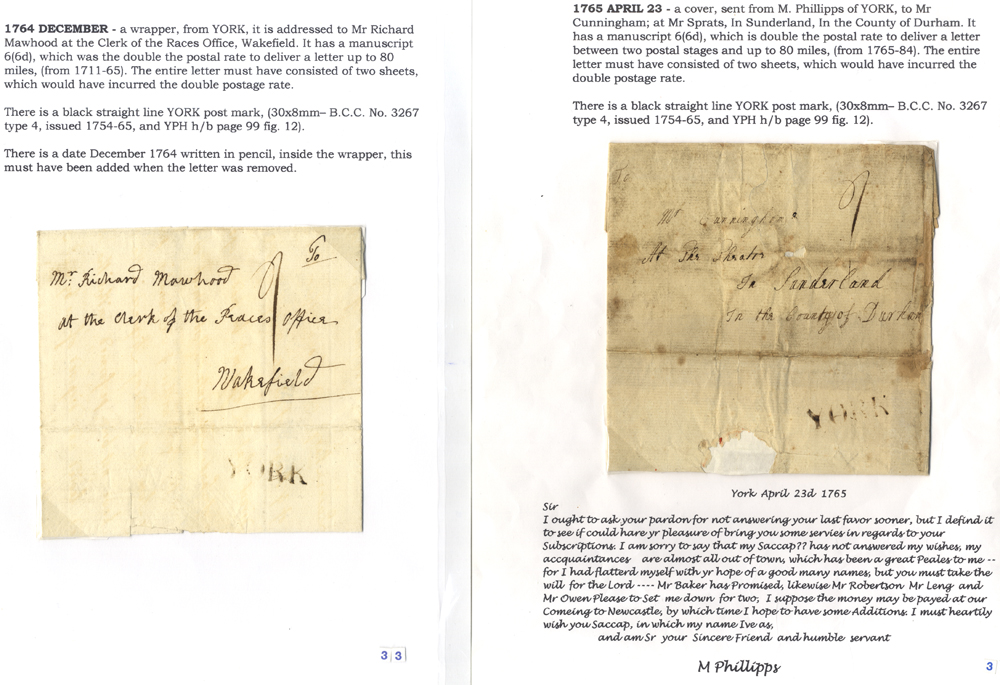 1764 DECEMBER - a wrapper, from YORK, it is addressed to Mr Richard
Mawhood at the Clerk of the Races Office, Wakefield. It has a manuscript
6(6d), which was the double the postal rate to deliver a letter up to 80
miles, (from 1711-65). The entire letter must have consisted of two sheets,
which would have incurred the double postage rate.
There is a black straight line YORK post mark, (30x8mm– B.C.C. No. 3267
type 4, issued 1754-65, and YPH h/b page 99 fig. 12).
There is a date December 1764 written in pencil, inside the wrapper, this
must have been added when the letter was removed.
To
Mr Richard Mawhood
at the Clerk of the Races Office
Wakefield
YORK
3 3
1765 APRIL 23 - a cover, sent from M. Phillipps of YORK, to Mr
Cunningham; at Mr Sprats, In Sunderland, In the County of Durham. It
has a manuscript 6(6d), which is double the postal rate to deliver a letter
between two postal stages and up to 80 miles, (from 1765-84). The entire
letter must have consisted of two sheets, which would have incurred the
double postage rate.
There is a black straight line YORK post mark, (30x8mm– B.C.C. No. 3267
type 4, issued 1754-65, and YPH h/b page 99 fig. 12).
To
Mr
At The
In Sunderland
In the County of Durham
YORK
York April 23d 1765
Sir
I ought to ask your pardon for not answering your last favor sooner, but I defind it
to see if could have yr pleasure of bring you some servies in regards to your
Subscriptions. I am sorry to say that my Saccap?? has not answered my wishes, my
accquaintances are almost all out of town, which has been a great Peales to me --
for I had flatterd myself with yr hope of a good many names, but you must take the
will for the Lord ---- Mr Baker has Promised, likewise Mr Robertson Mr Leng and
Mr Owen Please to Set me down for two, I suppose the money may be payed at our
Comeing to Newcastle, by which time I hope to have some Additions. I must heartily
wish you Saccap, in which my name Ive as,
and am Sr your Sincere Friend and humble servant
M Phillipps
3